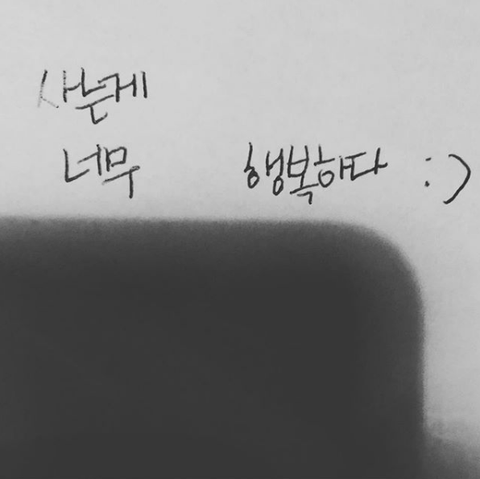 사는게
너무 행복하다 :)